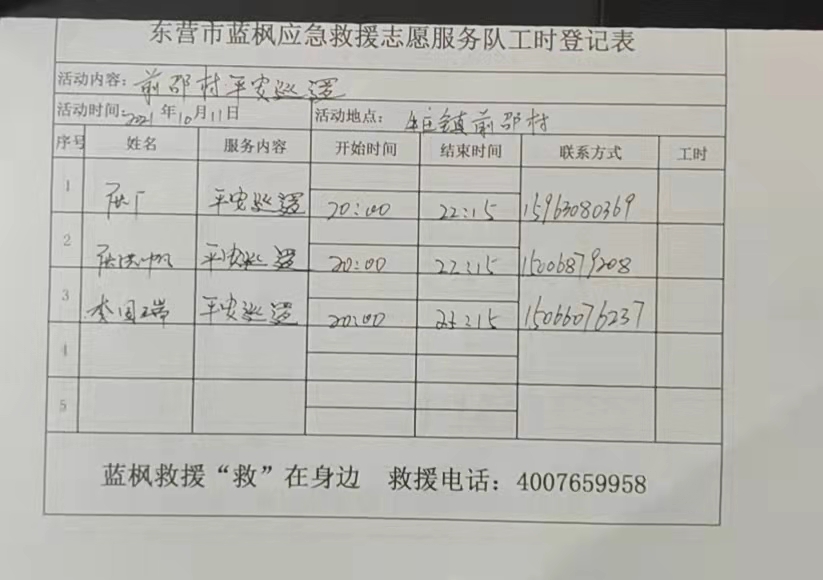 东营市蓝枫应急救援志愿服务队工时登记表
活动内容：前邵村平安巡逻
活动时间：2021年10月11日 活动地点：牛庄镇前邵村
序号 姓名 服务内容 开始时间 结束时间 联系方式 工时
1 平安巡逻 20:00 22:15 15963080369
2 平安巡逻 20:00 22:15 15006879208
3 李国瑞 平安巡逻 20:00 22:15 15066076237
4
5
蓝枫救援“救”在身边 救援电话：4007659958